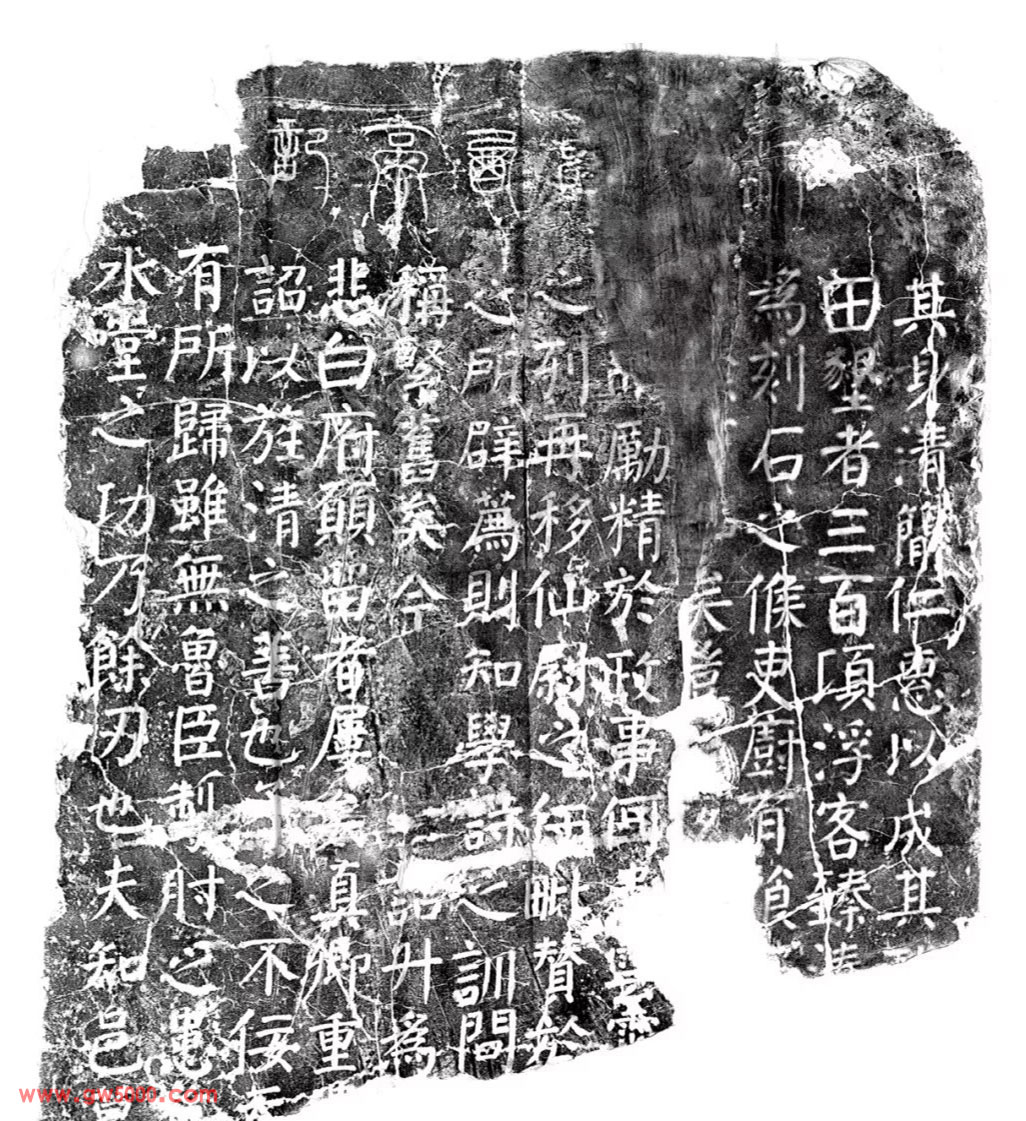 亭記
其身清簡仁惠以成其
田墾者三百頃浮客臻湊
為刻石之候吏廚有
矣
勵精於政事何
之列再移仙尉之任毗贊於
之所辟薦則知學詩之訓間
稱堅舊矣今詔升為
悲白府願留者屢矣真卿重
詔以旌清之善也之不佞
有所歸雖無魯臣掣肘之患
水堂之功乃餘刃也夫知邑
www.gw5000.com